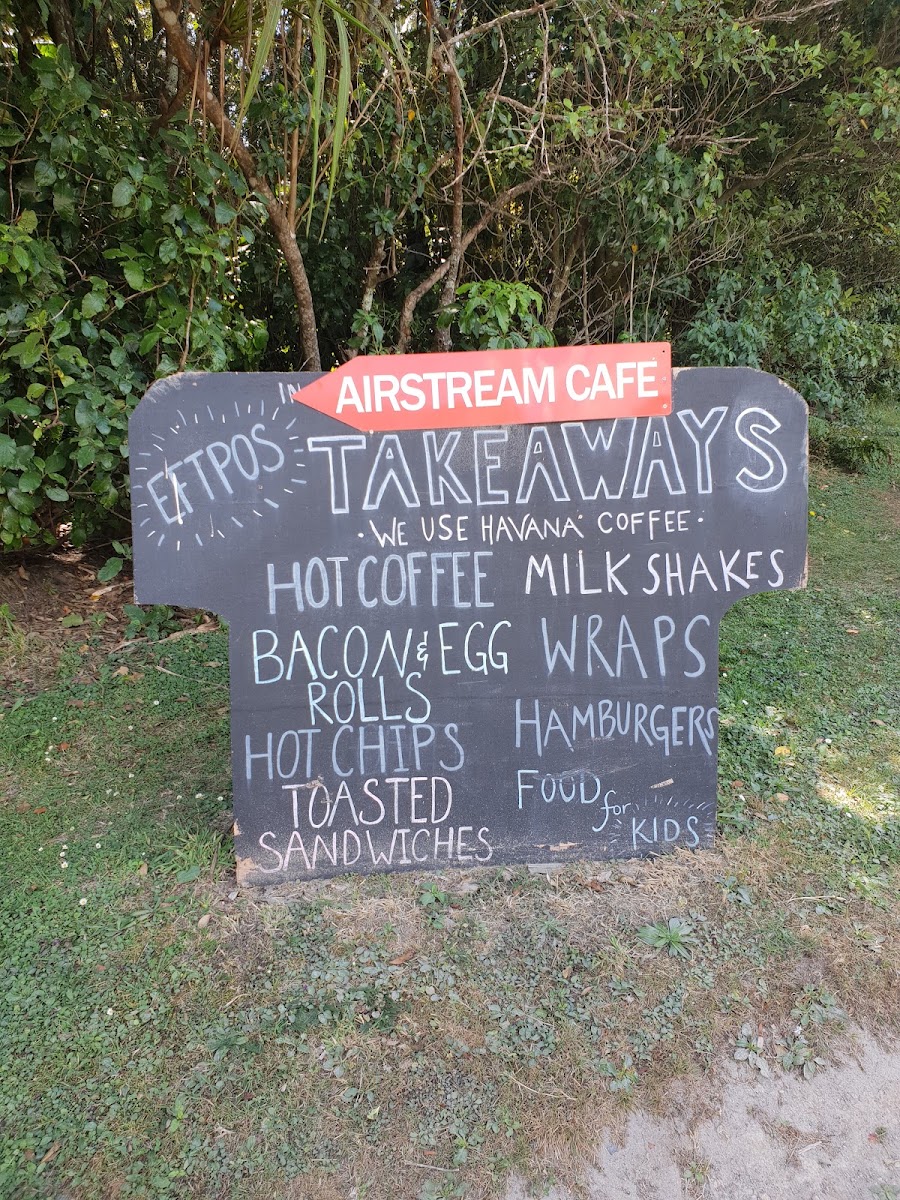 AIRSTREAM CAFE
EFTPOS
TAKEAWAYS
· WE USE HAVANA COFFEE ·
HOT COFFEE
MILK SHAKES
BACON & EGG
ROLLS
WRAPS
HOT CHIPS
HAMBURGERS
TOASTED
SANDWICHES
FOOD
for
KIDS